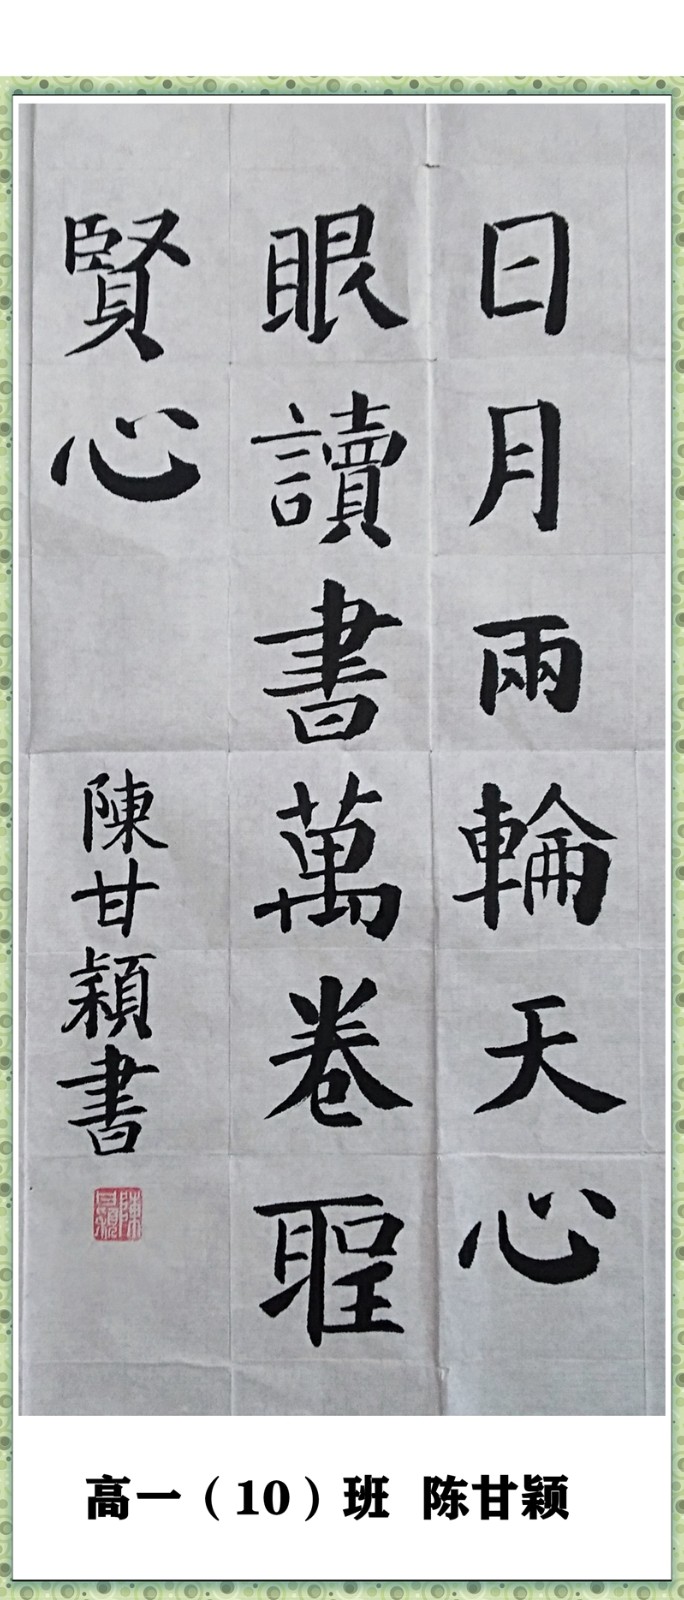 日月兩輪天心
眼讀書萬卷聖
賢心
陳甘穎書
陳甘穎
高一（10）班 陈甘颖